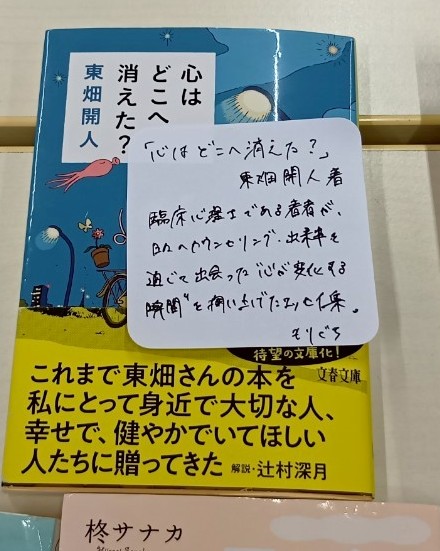 心は
どこへ
消えた?
東畑開人
「心はどこへ消えた?」
東畑開人著
臨床心理士である著者が、
日々のカウンセリング、出来事を
通じて出会った"心が変化する
瞬間"を掬い上げたエッセイ集。
もりぐち
待望の文庫化!
文春文庫
これまで東畑さんの本を
私にとって身近で大切な人、
幸せで、健やかでいてほしい
人たちに贈ってきた 解説・辻村深月
柊サナカ